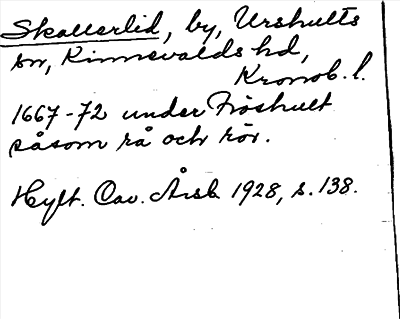 Skallerlid, by, Urshults
sn, Kinnevalds hd,
Kronob. l.
1667-72 under Fröshult
såsom rå och rör.
Hylt. Cav. Årsb. 1928, s. 138.